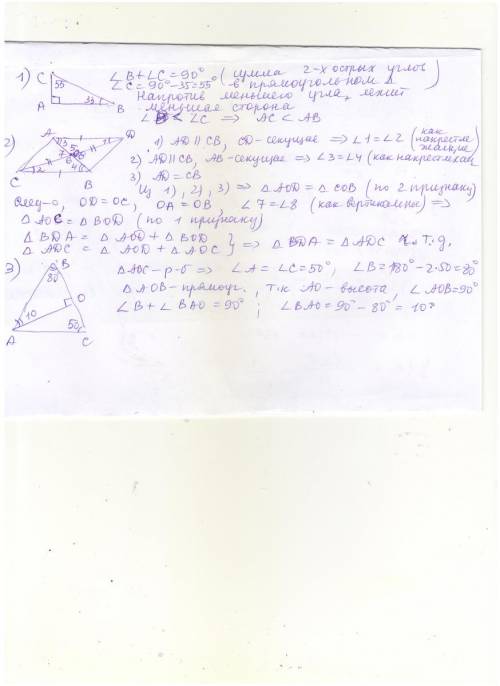 1) C 55 A 35 B ∠B+∠C=90° (сумма 2-х острых углов
∠C=90°-35=55° в прямоугольном Δ)
Напротив меньшего угла, лежит
меньшая сторона
∠B < ∠C ⇒ AC < AB
2) A D C B 1) AD || CB, CD-секущие ⇒ ∠1=∠2 (как накрестлежащие)
2) AD||CB, AB-секущие ⇒ ∠3=∠4 (как накрестлежащ
3) AD=CB
Из 1), 2), 3) ⇒ ΔAOD = ΔCOB (по 2 признаку)
След-о, OD=OC, OA=OB ∠7=∠8 (как вертикальные) ⇒
ΔAOC = ΔBOD (по 1 признаку)
ΔBDA = ΔAOD + ΔBOD
ΔADC = ΔAOD + ΔAOC } ⇒ ΔBDA = ΔADC Ч.т.д.
3) B 80 O 10 50 A C ΔABC - р-б ⇒ ∠A=∠C=50°, ∠B=180°-2·50=80°
ΔAOB-прямоуг., т.к AO-высота, ∠AOB=90°
∠B+∠BAO=90° ; ∠BAO=90°-80°=10°